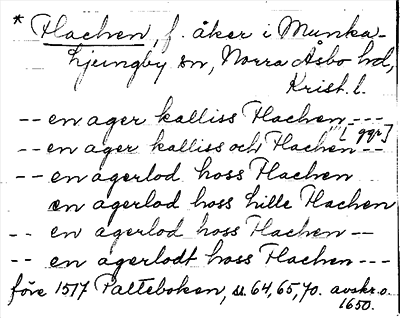 * Flachen, f. åker i Munka-
Ljungby sn, Norra Åsbo hd,
Krist. l.
-- en ager kalliss Flachen ---
[ ggr]
-- en ager kalliss och Flachen --
-- en agerlod hoss Flachen
en agerlod hoss hille Flachen
-- en agerlod hoss Flachen --
-- en agerlodt hoss Flachen ---
före 1517 Palteboken, s. 64, 65, 70. avskr. o.
1650.